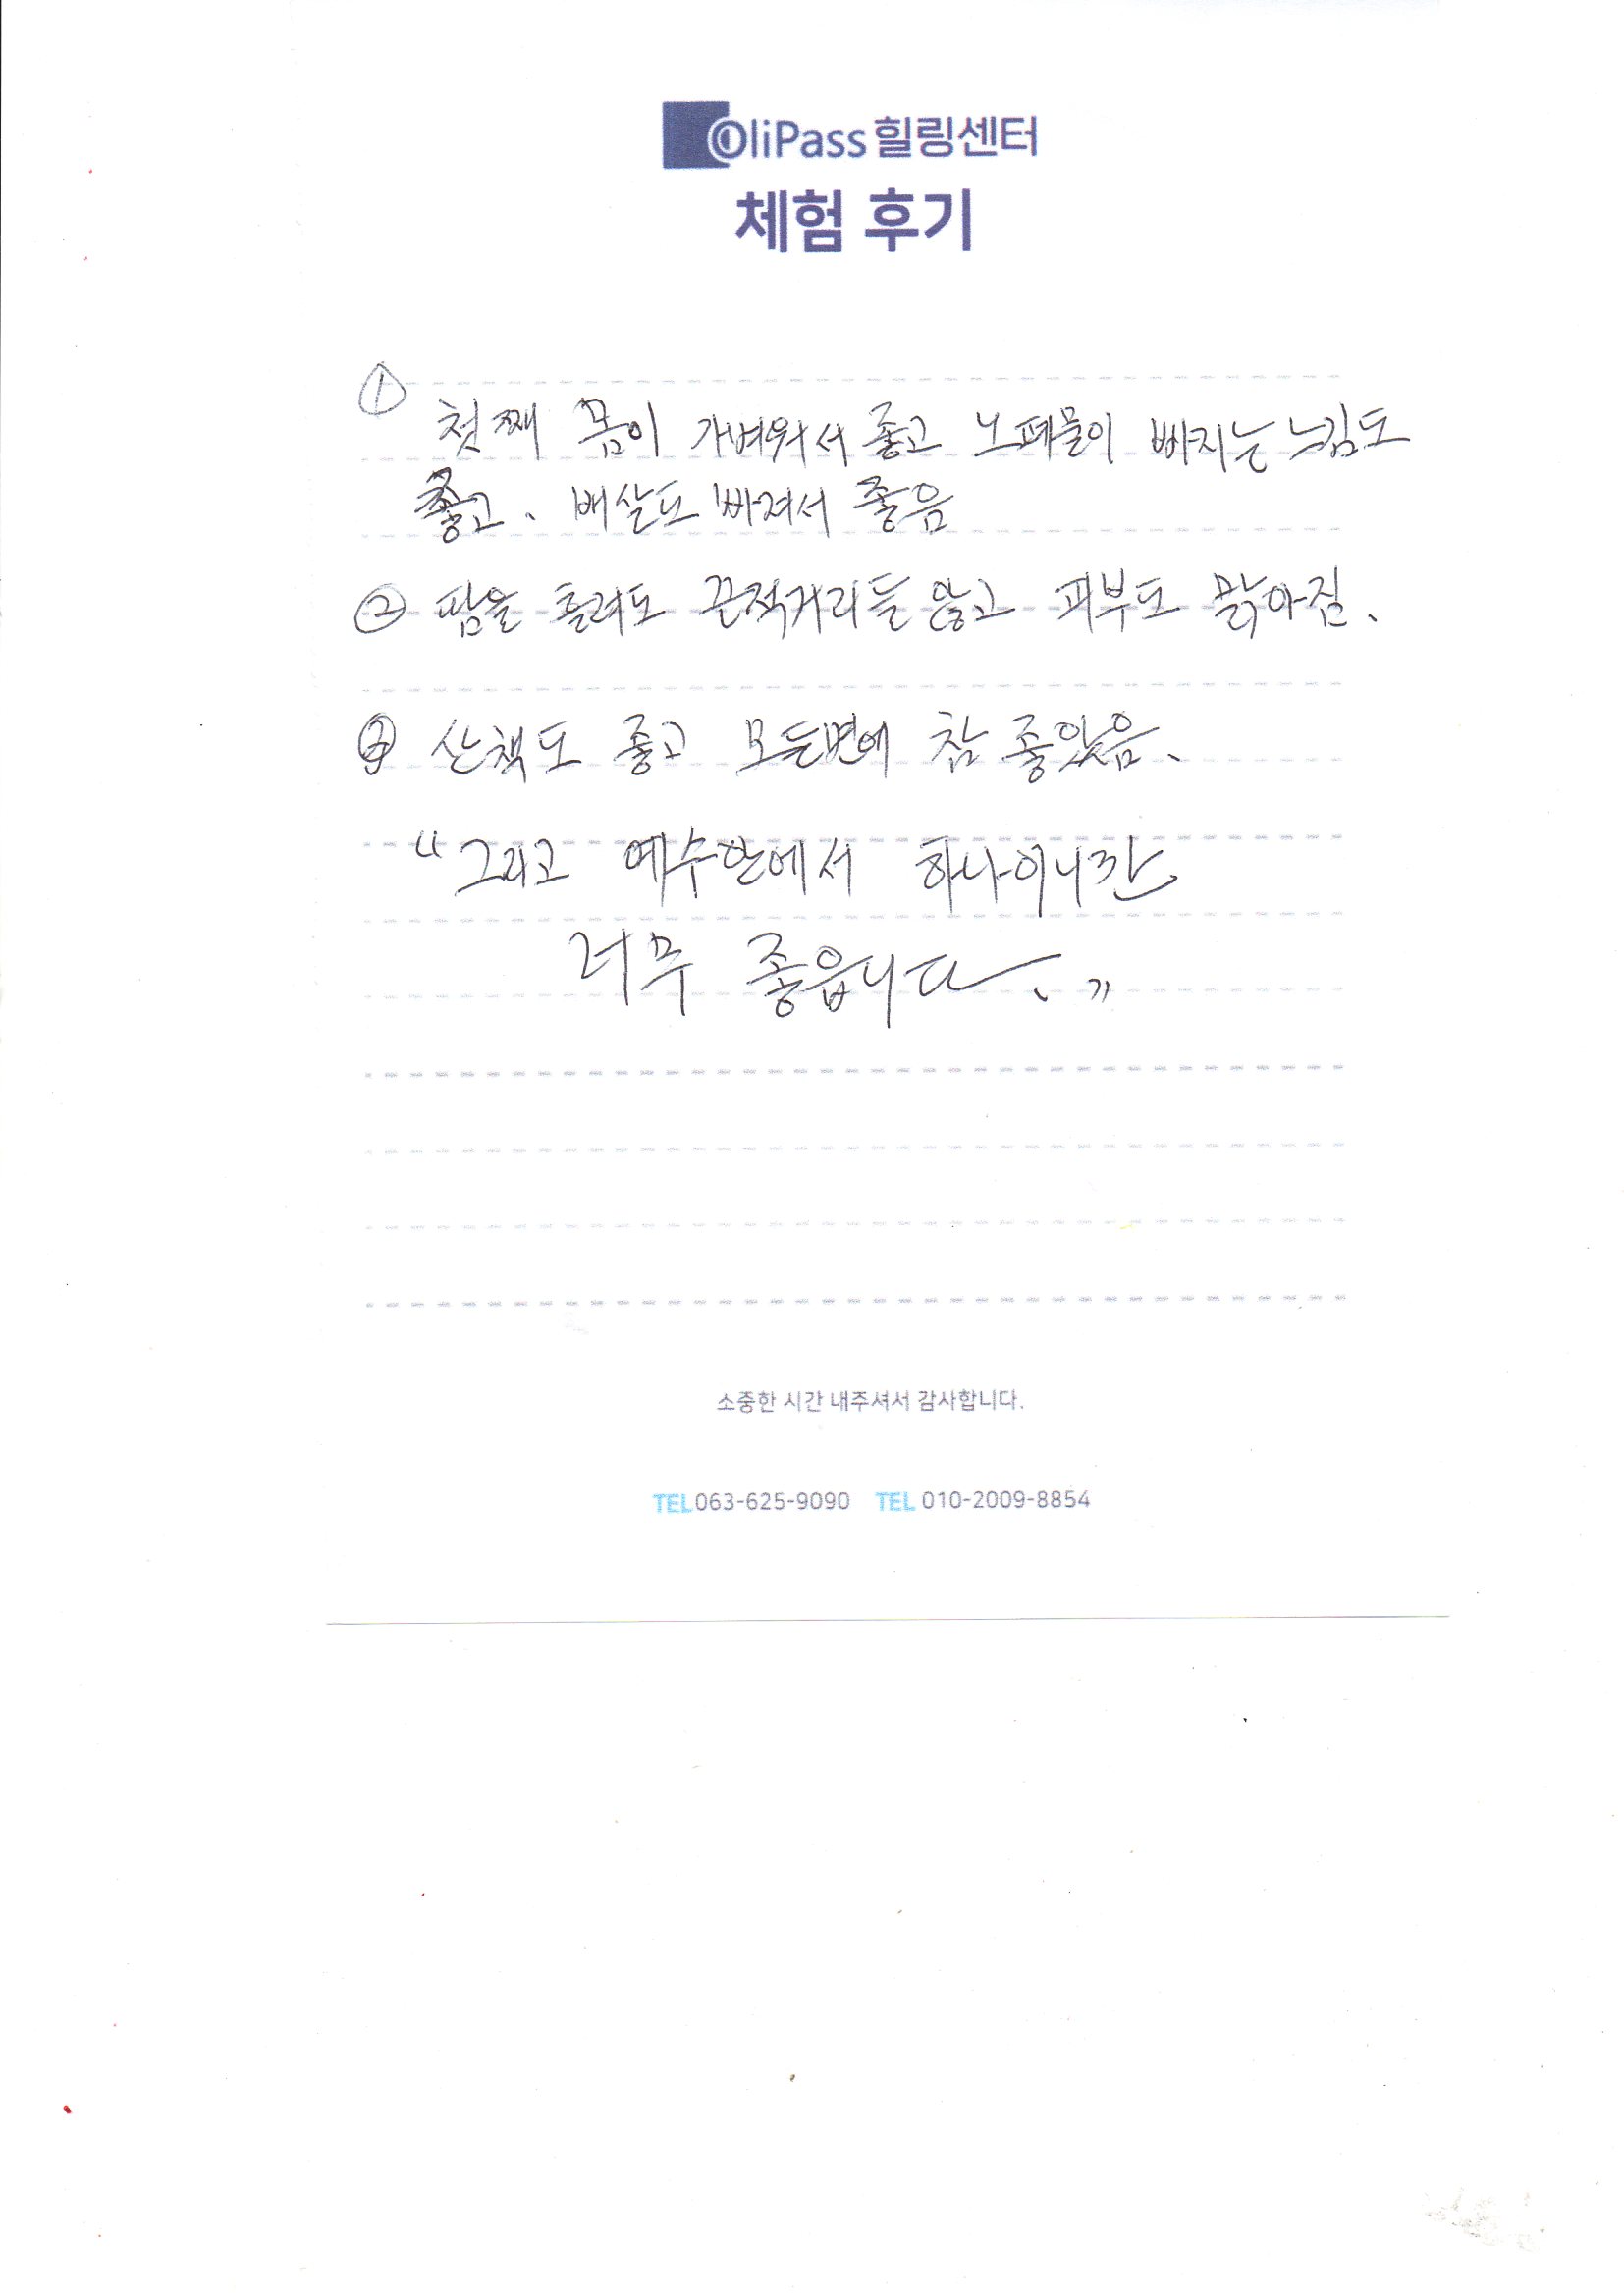 OliPass 힐링센터
체험 후기
①
첫째 몸이 가벼워서 좋고 노폐물이 빠지는 느낌도
좋고、 배살도 빠져서 좋음
② 땀을 흘려도 끈적거리들 않고 피부도 맑아짐、
③ 산책도 좋고 모든면에 참 좋았음、
“그리고 예수안에서 하나이니깐
너무 좋읍니다、”
소중한 시간 내주셔서 감사합니다.
TEL 063-625-9090 TEL 010-2009-8854